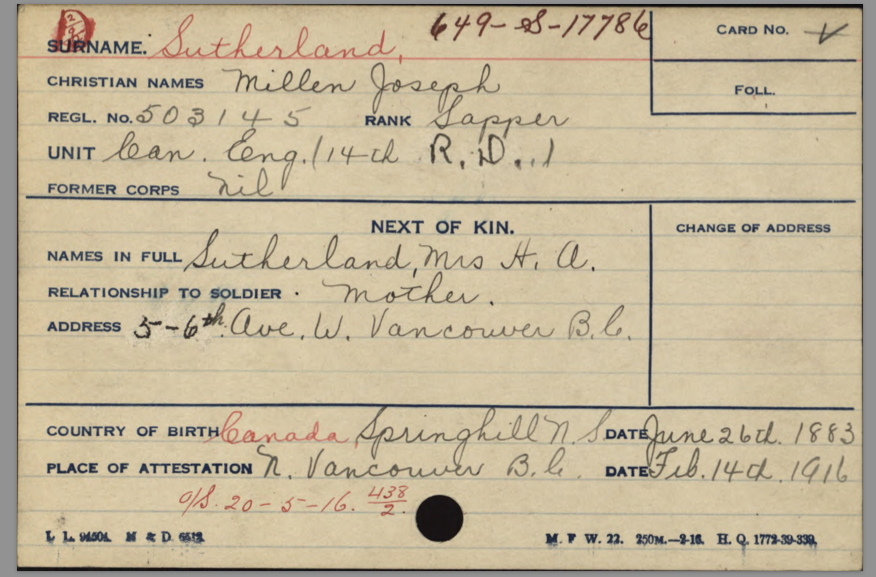 649-S-17786
SURNAME. Sutherland,
CARD No. ✓
CHRISTIAN NAMES Millen Joseph
FOLL.
REGL. No. 503145 RANK Sapper
UNIT Can. Eng. / 14th R.D. 1
FORMER CORPS nil
NEXT OF KIN.
CHANGE OF ADDRESS
NAMES IN FULL Sutherland, Mrs H. A.
RELATIONSHIP TO SOLDIER . Mother.
ADDRESS 5-6th. Ave. W. Vancouver B.C.
COUNTRY OF BIRTH Canada, Springhill N.S. DATE June 26th. 1883
PLACE OF ATTESTATION N. Vancouver B.C. DATE Feb. 14th. 1916
O/S. 20-5-16. 438/2.
L. L. 94504. M & D. 6512.
M. F. W. 22. 250M.—2-16. H. Q. 1772-39-339.